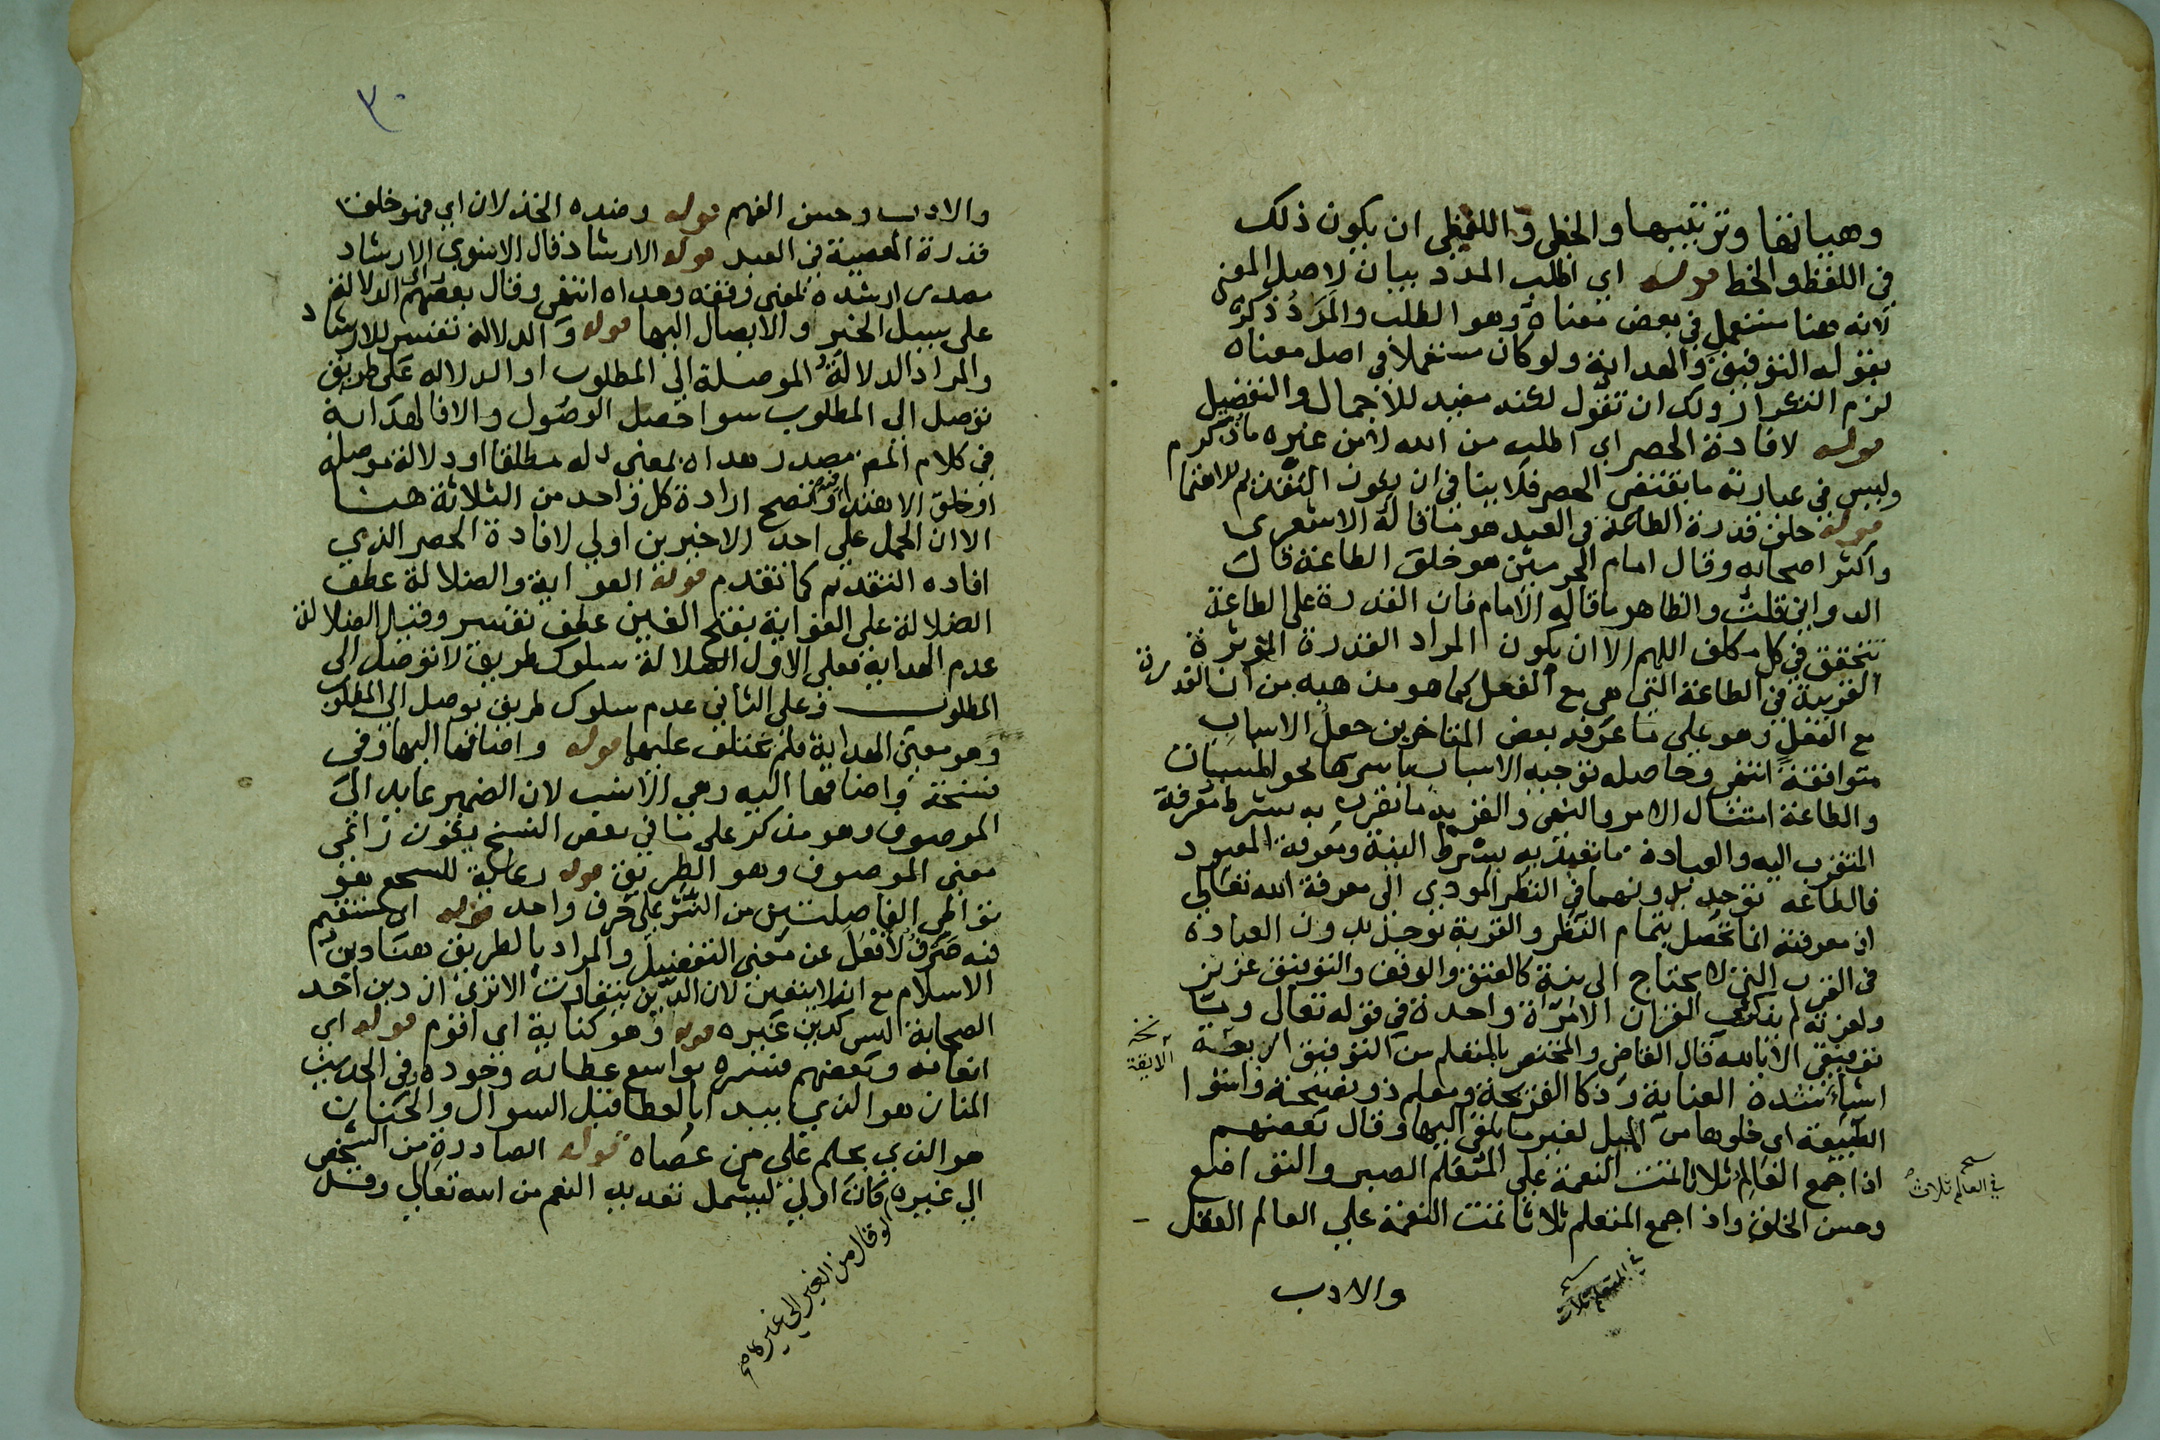 وهيباتها وترتيبها والخطى واللفظى ان يكون ذلك
في اللفظ والخط قوله اي اطلب المدد بيان لاصل المعنى
لانه هنا مستعمل في بعض معناه وهو الطلب والمدد ذكره
بقوله التوفيق والهداية ولو كان مستعملا في اصل معناه
لزم التكرار ولك ان تقول لكنه مفيد للاجمال والتفصيل
قوله لافادة الحصر اي اطلب من الله لا من غيره ما ذكر م
وليس في عبارته ما يقتضى الحصر فلا ينافي ان يكون التقديم للاهتما
قوله خلق قدرة الطاعة في العبد هو ما قاله الاشعرى
واكثر اصحابه وقال امام الحرمين هو خلق الطاعة قال
الدواني قلت والظاهر ما قاله الامام فان القدرة على الطاعة
تتحقق في كل مكلف اللهم الا ان يكون المراد القدرة المؤثرة
القريبة في الطاعة التي هي مع الفعل كما هو مذهبه من ان القدرة
مع الفعل وهو على ما عرفه بعض المتاخرين جعل الاسباب
متوافقة انتهى وحاصله توجيه الاسباب باسرها نحو المسببات
والطاعة امتثال الامر والنهى والقربة ما تقرب به بشرط معرفة
المتقرب اليه والعبادة ما تعبد به بشرط النية ومعرفة المعبود
فالطاعة توجد بدونهما في النظر المودي الى معرفة الله تعالى
اذ معرفته انما تحصل بتمام النظر والقربة توجد بدون العبادة
في القرب التي لا تحتاج الى نية كالعتق والوقف والتوفيق عزيز
ولعزته لم يذكر في القران الا مرة واحدة في قوله تعالى وما
توفيقي الا بالله قال القاضى والمختصر بالمتعلم من التوفيق اربعة
اشياء شدة العناية وذكا القريحة ومعلم ذو نصيحة واستوا
الطبيعة اى خلوها من الميل لغير ما يلقى اليها وقال بعضهم
اذا جمع العالم ثلاثا تمت النعمة على المتعلم الصبر والتواضع
وحسن الخلق واذا جمع المتعلم ثلاثا تمت النعمة على العالم العقل
والادب
نخـ
الانيقة
نسخـ
في العالم ثلاث
نسخـ
في المتعلم ثلاث
٣٠
والادب وحسن الفهم قوله وضده الخذلان اي فهو خلق
قدرة المعصية في العبد قوله الارشاد قال الاسنوي الارشاد
مصدر ارشده بمعنى وفقه وهداه انتهى وقال بعضهم اي الدلالة
على سبيل الخير والايصال اليها قوله والدلالة تفسير للارشاد
والمراد الدلالة الموصلة الى المطلوب او الدلاله على طريق
توصل الى المطلوب سوا حصل الوصول والا فالهداية
في كلام المص مصدر هداه بمعنى دله مطلقا او دلالة موصلة
او خلق الاهتدا فيه وتصح ارادة كل واحد من الثلاثة هنا
الا ان الحمل على احد الاخيرين اولى لافادة الحصر الذي
افاده التقديم كما تقدم قوله الغواية والضلالة عطف
الضلالة على الغواية بفتح الغين عطف تفسير وقيل الضلالة
عدم الهداية فعلى الاول الضلالة سلوك طريق لا توصل الى
المطلوب وعلى الثاني عدم سلوك طريق توصل الى المطلوب
وهو معنى الهداية فلم تختلف عليها قوله واضافها اليها وفي
نسخة واضافها اليه وهي الانسب لان الضمير عايد الى
الموصوف وهو مذكر على ما في بعض النسخ يكون راعى
معنى الموصوف وهو الطريق قوله رعاية للسجع هو
توالي الفاصلتين من النثر على حرف واحد قوله اى مستقيم
فيه صرف لافعل عن معنى التفضيل والمراد بالطريق هنا دين
الاسلام مع انه لا يتعين لان الدين يتفاوت الا ترى ان دين احد
الصحابة ليس كدين غيره قوله وهو كناية اى اقوم قوله اى
انعامه وبعضهم فسره بواسع عطائه وجوده وفي الحديث
المنان هو الذي يبدا بالعطا قبل السوال والحنان
هو الذي يحلم على من عصاه قوله الصادرة من الشخص
الى غيره كان اولى ليشمل تعديد النعم من الله تعالى وقد
لو قال من الغير الى غيره صح